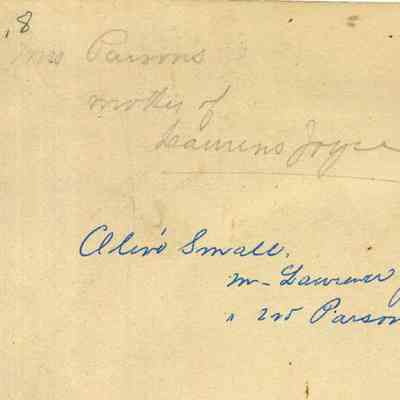 ,8
Mrs Parsons
mother of
Laurens Joyce
Olive Small.
m- Lawrence
" 2nd Parson